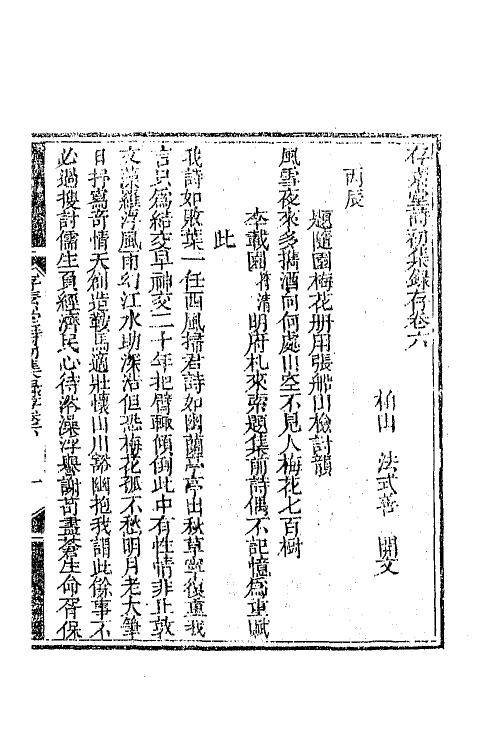 存素堂詩初集錄存卷六
柏山 法式善 開文
丙辰
題隨園梅花册用張船山檢討韻
風雪夜來多攜酒向何處山空不見人梅花七百樹
李載園符清明府札來索題集前詩偶不記憶爲重賦
此
我詩如敗葉一任西風掃君詩如幽蘭亭亭出秋草寧復重我
言只爲結交早神交二十年把臂輒傾倒此中有性情非止敦
文藻維浮風雨幻江水助深浩但恐梅花孤不愁明月老大筆
日抒寫奇情天創造鞍馬適壯懷山川豁幽抱我謂此餘事不
必過搜討儒生負經濟民心待澡浮譽謝苛盡蒼生命胥保
存素堂詩初集錄存卷六 一